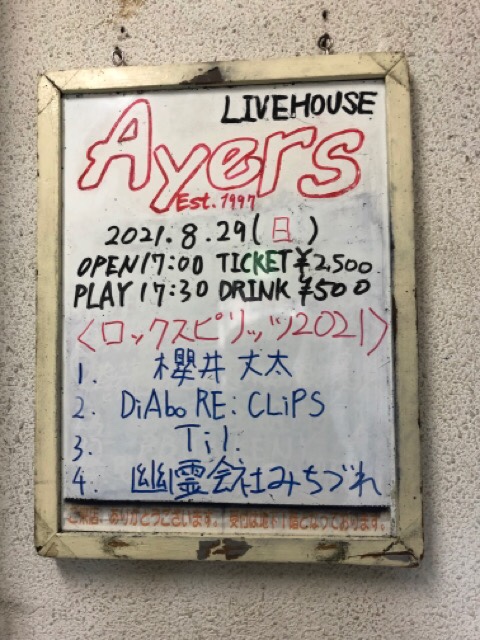 LIVEHOUSE
Ayers
Est. 1997
2021.8.29(日)
OPEN17:00 TICKET¥2,500
PLAY 17:30 DRINK ¥500
〈ロックスピリッツ2021〉
1. 櫻井 丈太
2. DiAbo RE:CLiPS
3. Til
4. 幽霊会社みちづれ
ご来店、ありがとうございます。 受付は地下1階となっております。